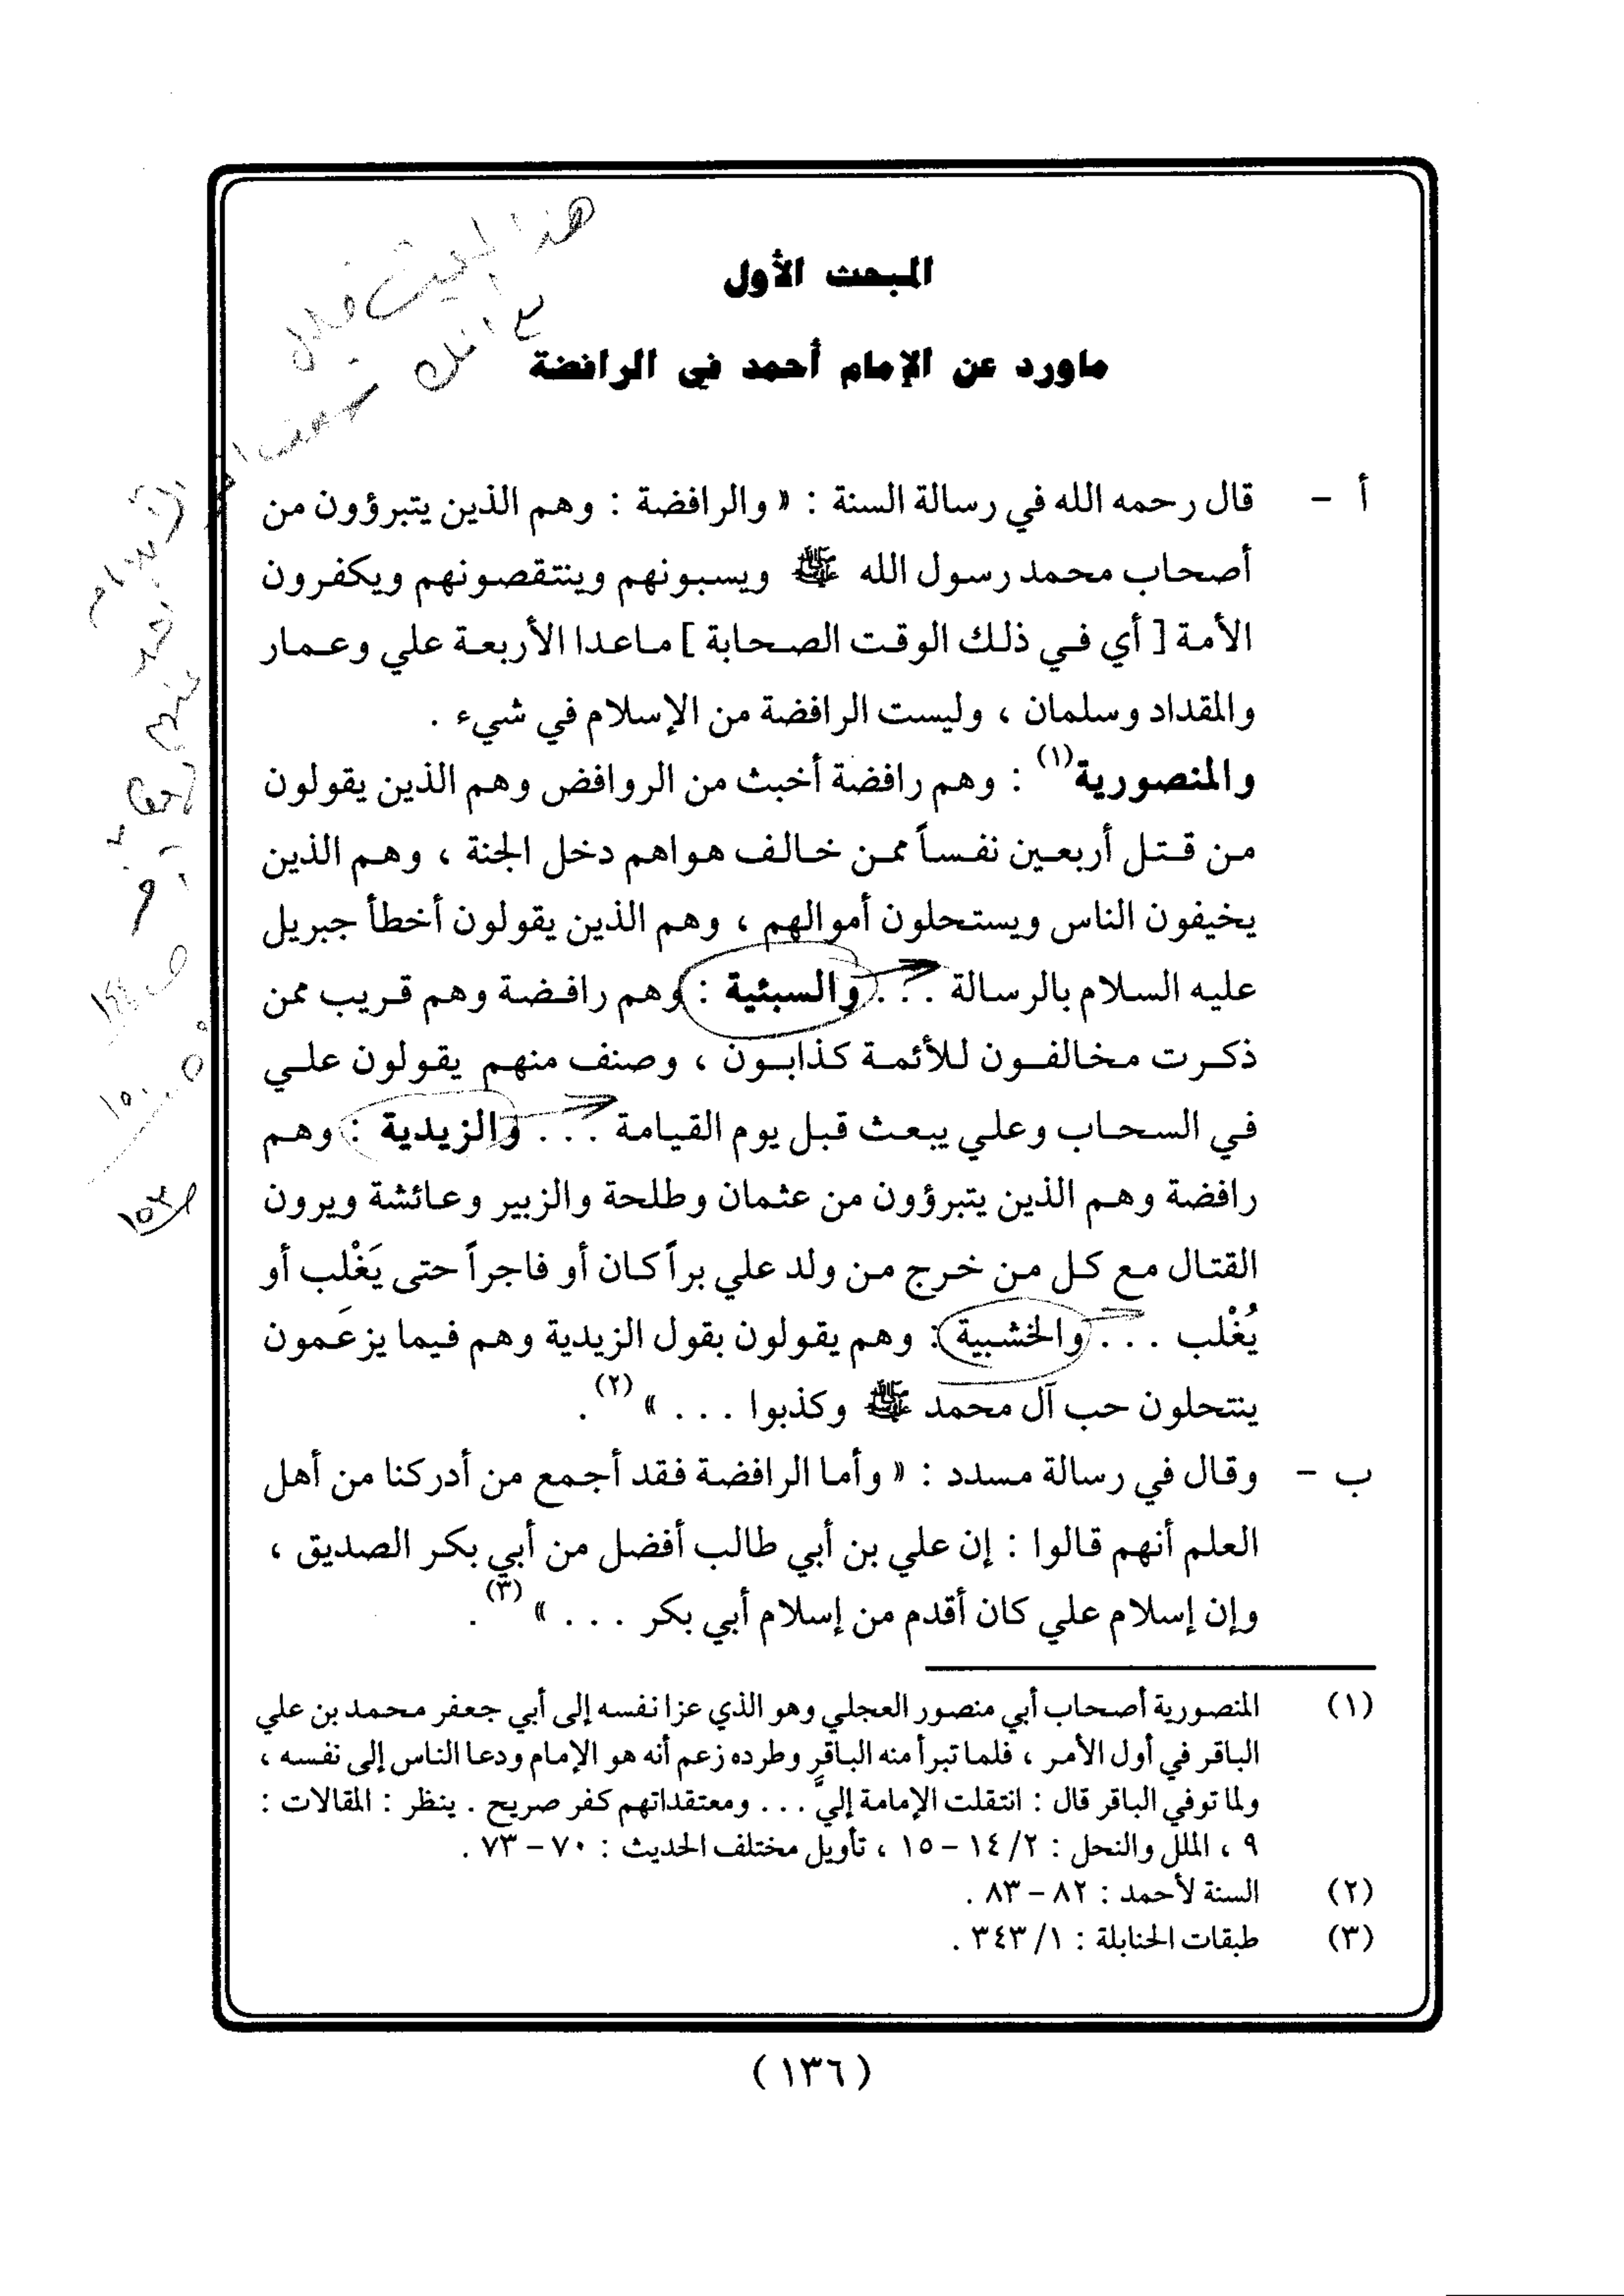 المبحث الأول
ماورد عن الإمام أحمد في الرافضة
أ - قال رحمه الله في رسالة السنة : « والرافضة : وهم الذين يتبرؤون من
أصحاب محمد رسول الله ﷺ ويسبونهم وينتقصونهم ويكفرون
الأمة [ أي في ذلك الوقت الصحابة ] ماعدا الأربعة علي وعمار
والمقداد وسلمان ، وليست الرافضة من الإسلام في شيء .
والمنصورية(١) : وهم رافضة أخبث من الروافض وهم الذين يقولون
من قتل أربعين نفساً ممن خالف هواهم دخل الجنة ، وهم الذين
يخيفون الناس ويستحلون أموالهم ، وهم الذين يقولون أخطأ جبريل
عليه السلام بالرسالة . . . والسبئية : وهم رافضة وهم قريب ممن
ذكرت مخالفون للأئمة كذابون ، وصنف منهم يقولون علي
في السحاب وعلي يبعث قبل يوم القيامة . . . والزيدية : وهم
رافضة وهم الذين يتبرؤون من عثمان وطلحة والزبير وعائشة ويرون
القتال مع كل من خرج من ولد علي براً كان أو فاجراً حتى يَغْلب أو
يُغْلَب . . . والخشبية : وهم يقولون بقول الزيدية وهم فيما يزعمون
ينتحلون حب آل محمد ﷺ وكذبوا . . . » (٢) .
ب - وقال في رسالة مسدد : « وأما الرافضة فقد أجمع من أدركنا من أهل
العلم أنهم قالوا : إن علي بن أبي طالب أفضل من أبي بكر الصديق ،
وإن إسلام علي كان أقدم من إسلام أبي بكر . . . » (٣) .
(١) المنصورية أصحاب أبي منصور العجلي وهو الذي عزا نفسه إلى أبي جعفر محمد بن علي
الباقر في أول الأمر ، فلما تبرأ منه الباقر وطرده زعم أنه هو الإمام ودعا الناس إلى نفسه ،
ولما توفي الباقر قال : انتقلت الإمامة إليَّ . . . ومعتقداتهم كفر صريح . ينظر : المقالات :
٩ ، الملل والنحل : ٢/ ١٤ - ١٥ ، تأويل مختلف الحديث : ٧٠ - ٧٣ .
(٢) السنة لأحمد : ٨٢ - ٨٣ .
(٣) طبقات الحنابلة : ١/ ٣٤٣ .
( ١٣٦ )
هذا